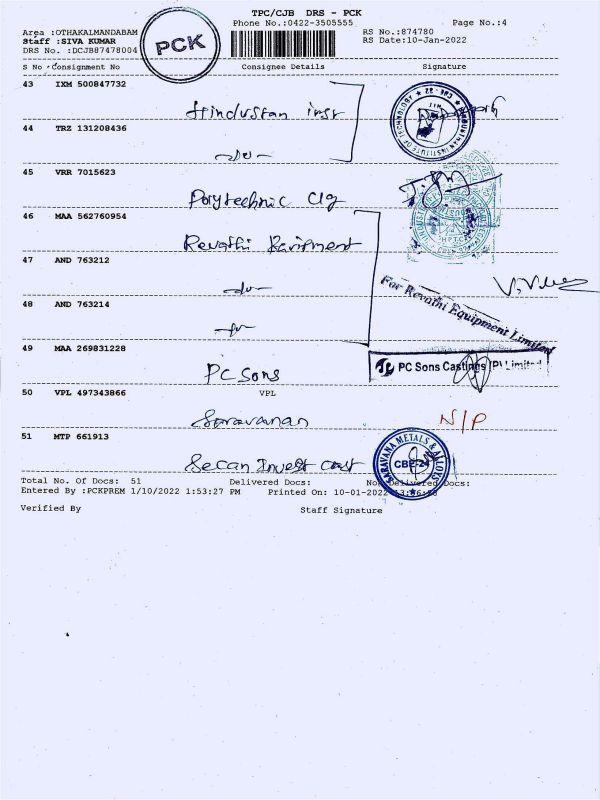 TPC/CJB DRS - PCK
Phone No.:0422-3505555 Page No.:4
Area :OTHAKALMANDABAM RS No.:874780
Staff :SIVA KUMAR RS Date:10-Jan-2022
DRS No. :DCJB87478004
PCK
S No Consignment No Consignee Details Signature
43 IXM 500847732
Hindustan inst
44 TRZ 131208436
-do-
45 VRR 7015623
Polytechnic Clg
46 MAA 562760954
Revathi
47 AND 763212
-do-
48 AND 763214
For Revathi Equipment Limited
49 MAA 269831228
PC Sons
PC Sons Castings (P) Limited
50 VPL 497343866 VPL
Saravanan N/P
51 MTP 661913
Secan Invest cast
SARAVANA METALS & ALLOYS
CBE-24
Total No. Of Docs: 51 Delivered Docs: Non Delivered Docs:
Entered By :PCKPREM 1/10/2022 1:53:27 PM Printed On: 10-01-2022
Verified By Staff Signature